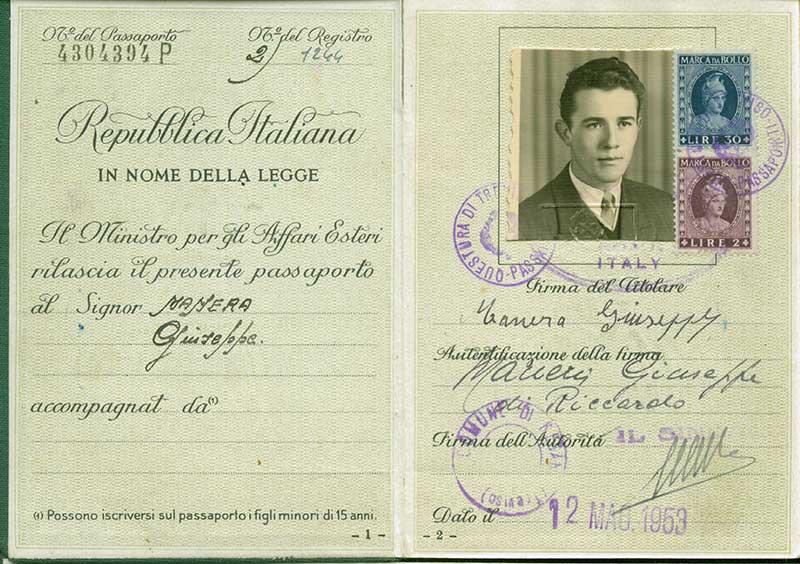 Nº del Passaporto
4304394 P
Nº del Registro
2) 1244
Repubblica Italiana
IN NOME DELLA LEGGE
Il Ministro per gli Affari Esteri
rilascia il presente passaporto
al Signor MANERA
Giuseppe.
accompagnat da(1)
(1) Possono iscriversi sul passaporto i figli minori di 15 anni.
- 1 -
MARCA DA BOLLO
LIRE 30
MARCA DA BOLLO
LIRE 2
QUESTURA DI
ITALY
Firma del Titolare
Manera Giuseppe
Autentificazione della firma
Manera Giuseppe
di Riccardo
COMUNE DI
Firma dell'Autorità
IL
Dato il 12 MAG. 1953
- 2 -